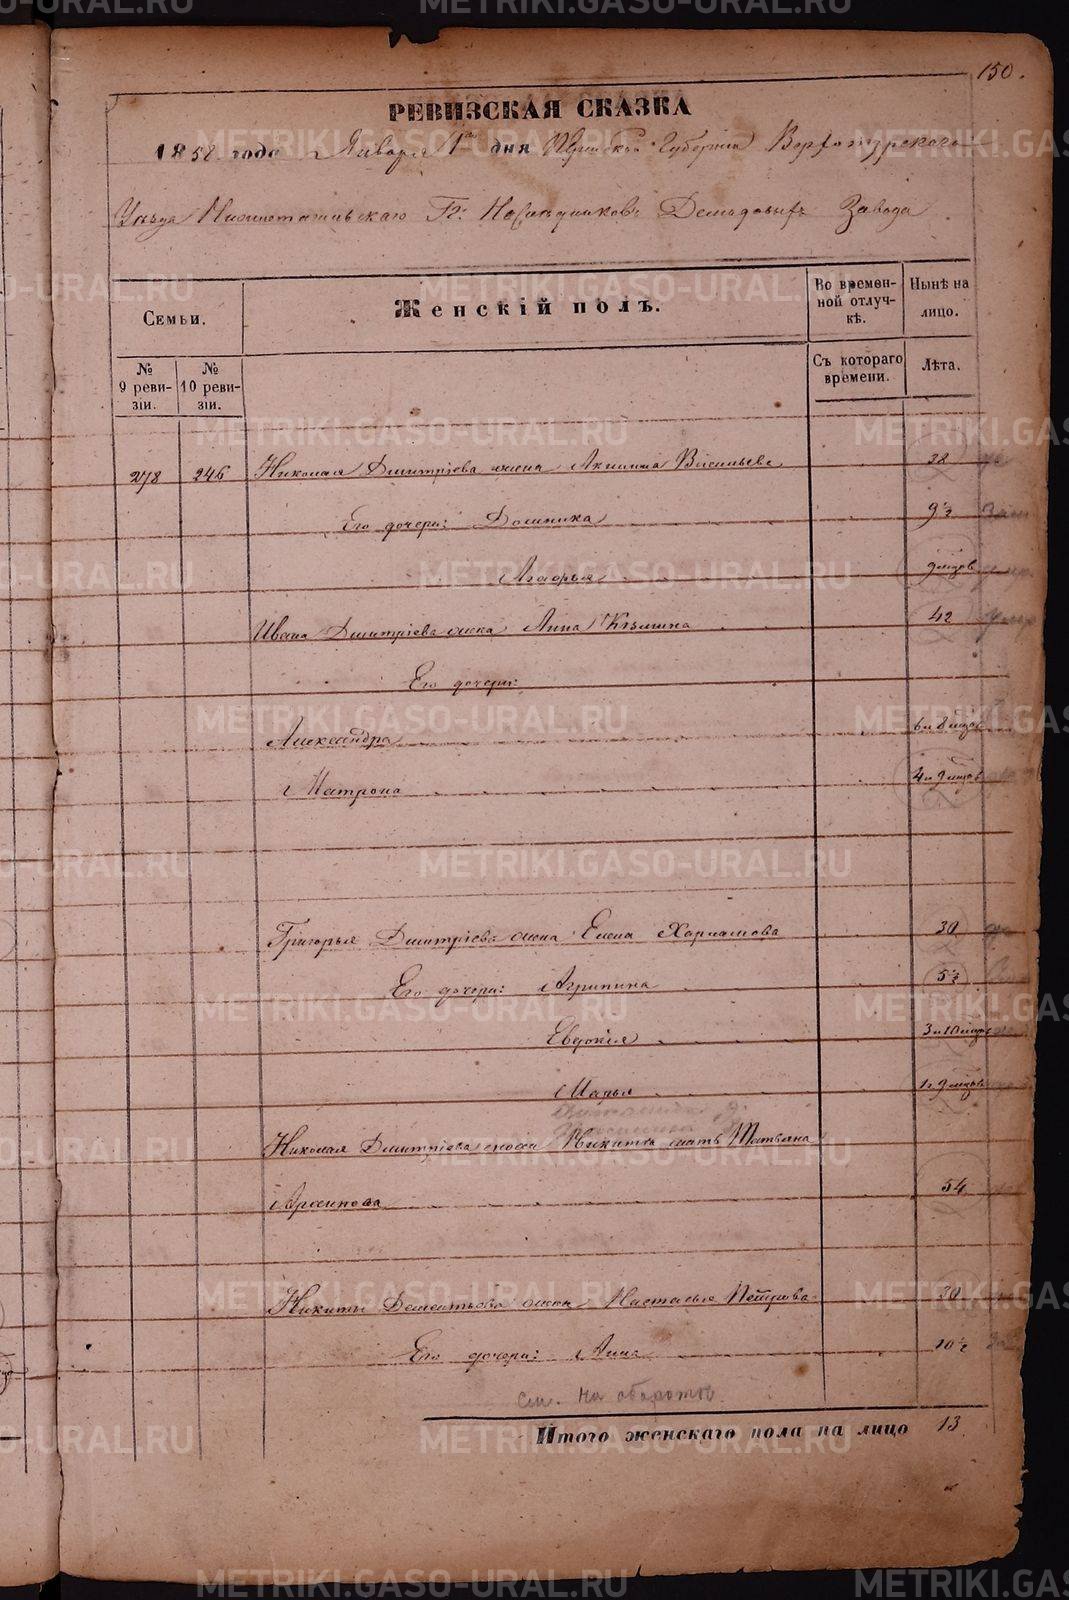 150.
РЕВИЗСКАЯ СКАЗКА
1858 года Января 1го дня Пермской Губерніи Верхотурскаго
Уѣзда Нижнетагильскаго Гг: Наслѣдниковъ Демидовыхъ Завода
Семьи.
Женскій полъ.
Во временной отлучкѣ.
Нынѣ на лицо.
№ 9 ревизіи.
№ 10 ревизіи.
Съ котораго времени.
Лѣта.
278 246 Николая Дмитріева жена Акилина Васильева 38
Его дочери: Домника 9½
Агафья 9 мцов
Ивана Дмитріева жена Анна Кузмина 42
Его дочери:
Александра 6 и 8 мцов
Матрона 4 и 9 мцов
Григорья Дмитріева жена Елена Харламова 30
Его дочери: Агрипина 5½
Евдокія 3 и 10 мцовъ
Марья 1 и 9 мцовъ
Николая Дмитріева Никиты мать Татьяна
Архипова 54
Никиты Дементьева жена Настасья Петрова 30
Его дочери: Анна 10½
см. на оборотѣ
Итого женскаго пола на лицо 13
METRIKI.GASO-URAL.RU